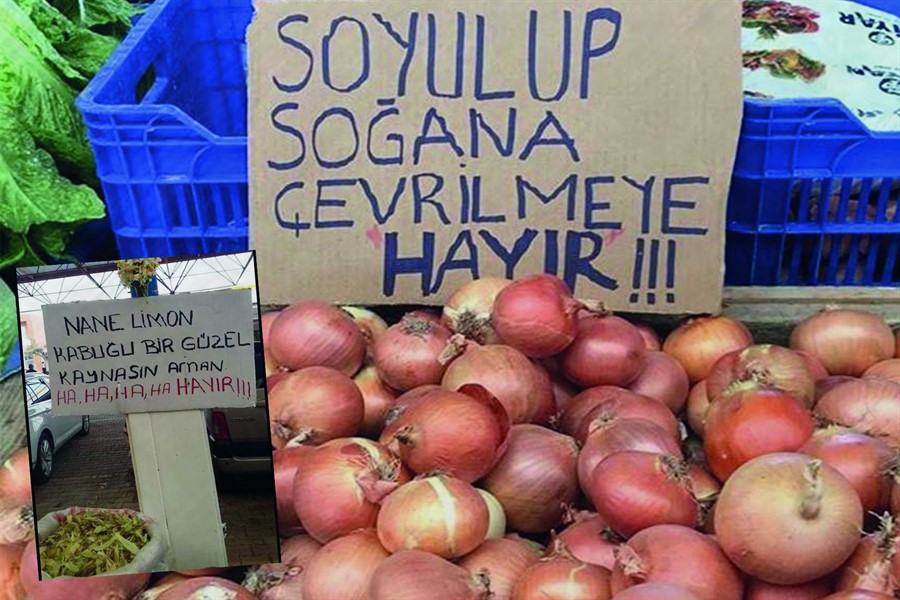 SOYULUP
SOĞANA
ÇEVRİLMEYE
HAYIR!!!
NANE LİMON
KABUĞU BİR GÜZEL
KAYNASIN AMAN
HA, HA, HA, HA HAYIR!!!